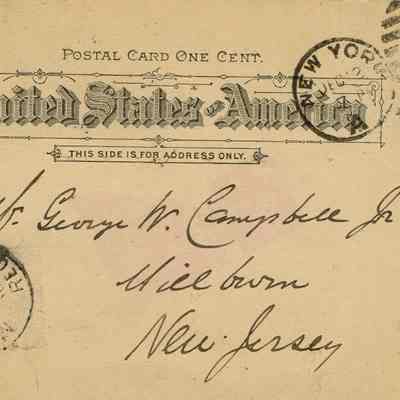 POSTAL CARD ONE CENT.
United States of America
THIS SIDE IS FOR ADDRESS ONLY.
NEW YORK
Mr. George W. Campbell Jr
Millburn
New Jersey
REC